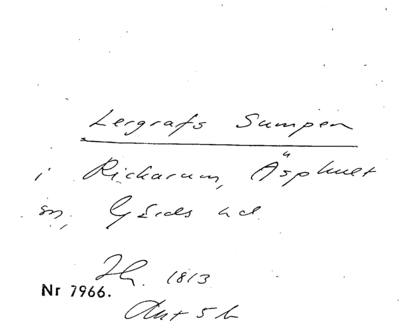 Lergrafs Sumpen
i Rickarum, Äsphult
sn, Gärds hd.
Jh. 1813
Nr 7966.
Ant 5 h